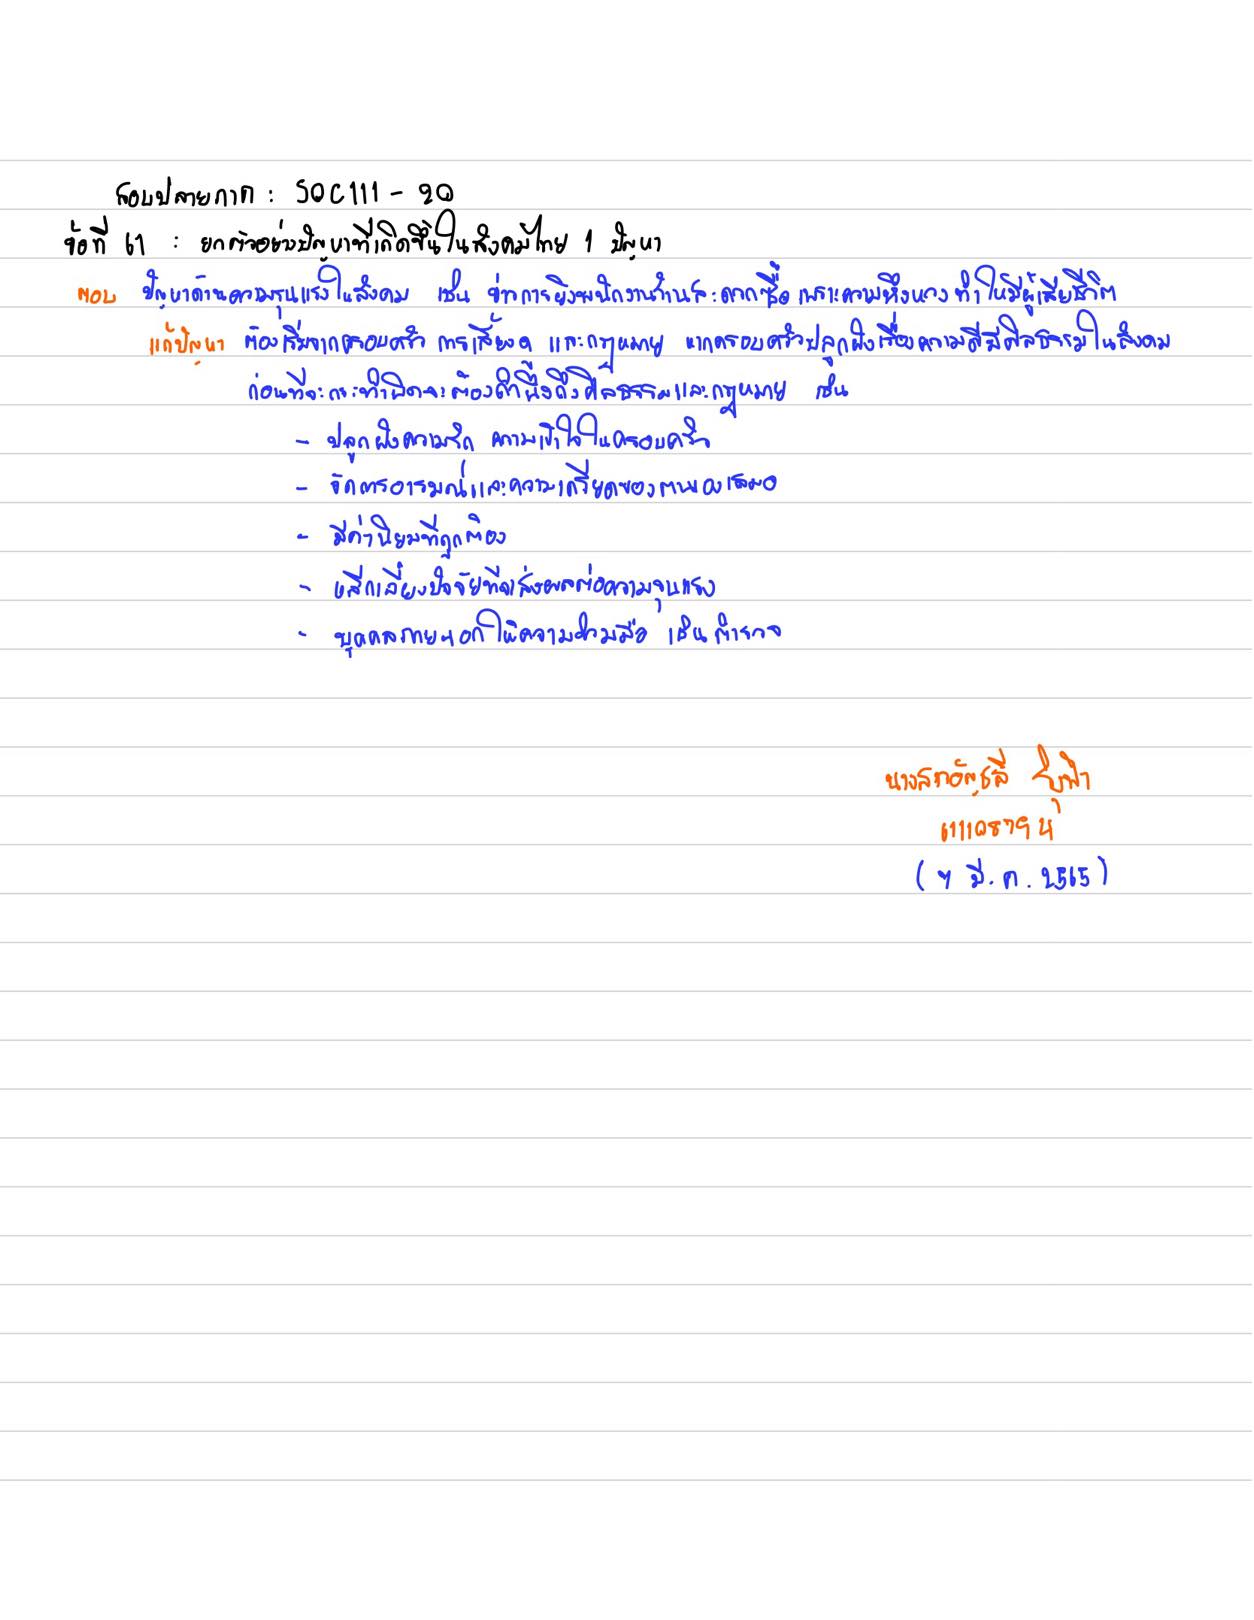 สอบปลายภาค : SOC111 - 20
ข้อที่ 61 : ยกตัวอย่างปัญหาที่เกิดขึ้นในสังคมไทย 1 ปัญหา
ตอบ ปัญหาด้านความรุนแรงในสังคม เช่น ข่าวการยิงพนักงานร้านสะดวกซื้อ เพราะความหึงหวง ทำให้มีผู้เสียชีวิต
แก้ปัญหา ต้องเริ่มจากครอบครัว การเลี้ยงดู และกฎหมาย หากครอบครัวปลูกฝังเรื่องความดีมีศีลธรรมในสังคม
ก่อนที่จะกระทำผิดจะต้องคำนึงถึงศีลธรรมและกฎหมาย เช่น
- ปลูกฝังความรัก ความเข้าใจในครอบครัว
- จัดการอารมณ์และความเครียดของตนเองเสมอ
- มีค่านิยมที่ถูกต้อง
- หลีกเลี่ยงปัจจัยที่จะส่งผลต่อความรุนแรง
- บุคคลภายนอกให้ความร่วมมือ เช่น ตำรวจ
นางสาวอัญชลี
(4 มี.ค. 2565)